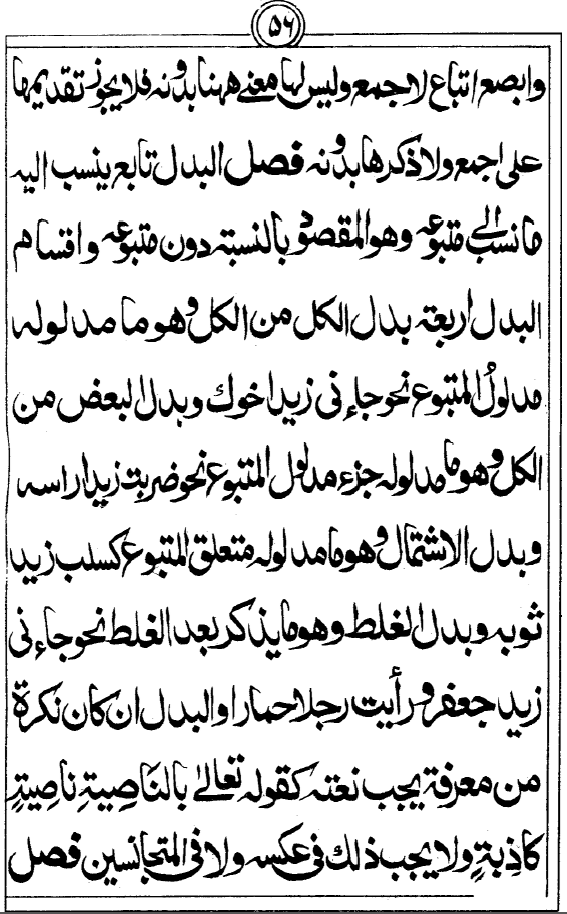 ۵۶
وابصع اتباع لاجمع وليس لها معنے ههنا بدونه فلا يجوز تقديمها
على اجمع ولا ذكرها بدونه فصل البدل تابع ينسب اليه
ما نسب الے متبوعه وهو المقصود بالنسبة دون متبوعه واقسام
البدل اربعة بدل الكل من الكل وهو ما مدلوله
مدلولُ المتبوع نحو جاءنى زيد اخوك وبدل البعض من
الكل وهو ما مدلوله جزء مدلول المتبوع نحو ضربت زيدا راسه
وبدل الاشتمال وهو ما مدلوله متعلق المتبوع كسلب زيد
ثوبه وبدل الغلط وهو ما يذكر بعد الغلط نحو جاءنى
زيد جعفر ورأيت رجلا حمارا والبدل ان كان نكرة
من معرفة يجب نعته كقوله تعالےٰ بالنَاصِيَةِ ناصِيَةٍ
كاذِبَةٍ ولا يجب ذلك فى عكسه ولا فى المتجانسين فصل